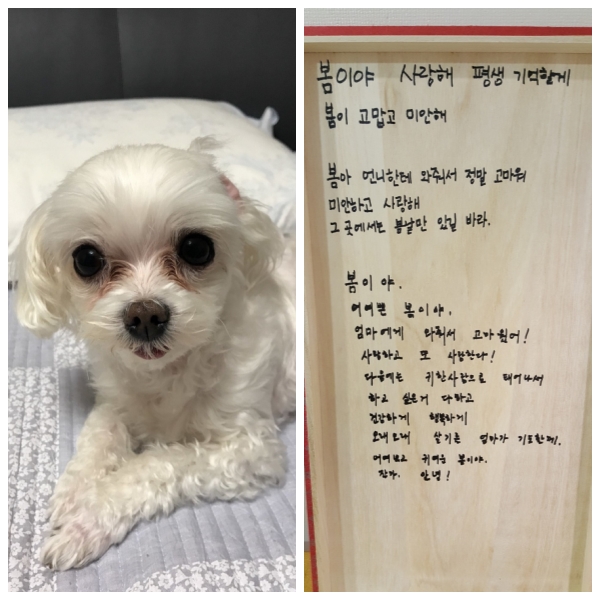 봄이야 사랑해 평생 기억할게
봄이 고맙고 미안해
봄아 언니한테 와줘서 정말 고마워
미안하고 사랑해
그 곳에서는 봄날만 있길 바라.
봄이야.
어여쁜 봄이야,
엄마에게 와줘서 고마웠어!
사랑하고 또 사랑한다!
다음에는 귀한사람으로 태어나서
하고 싶은거 다하고
건강하게 행복하게
오래오래 살기를 엄마가 기도한데.
어여쁘고 귀여운 봄이야.
잘가. 안녕!